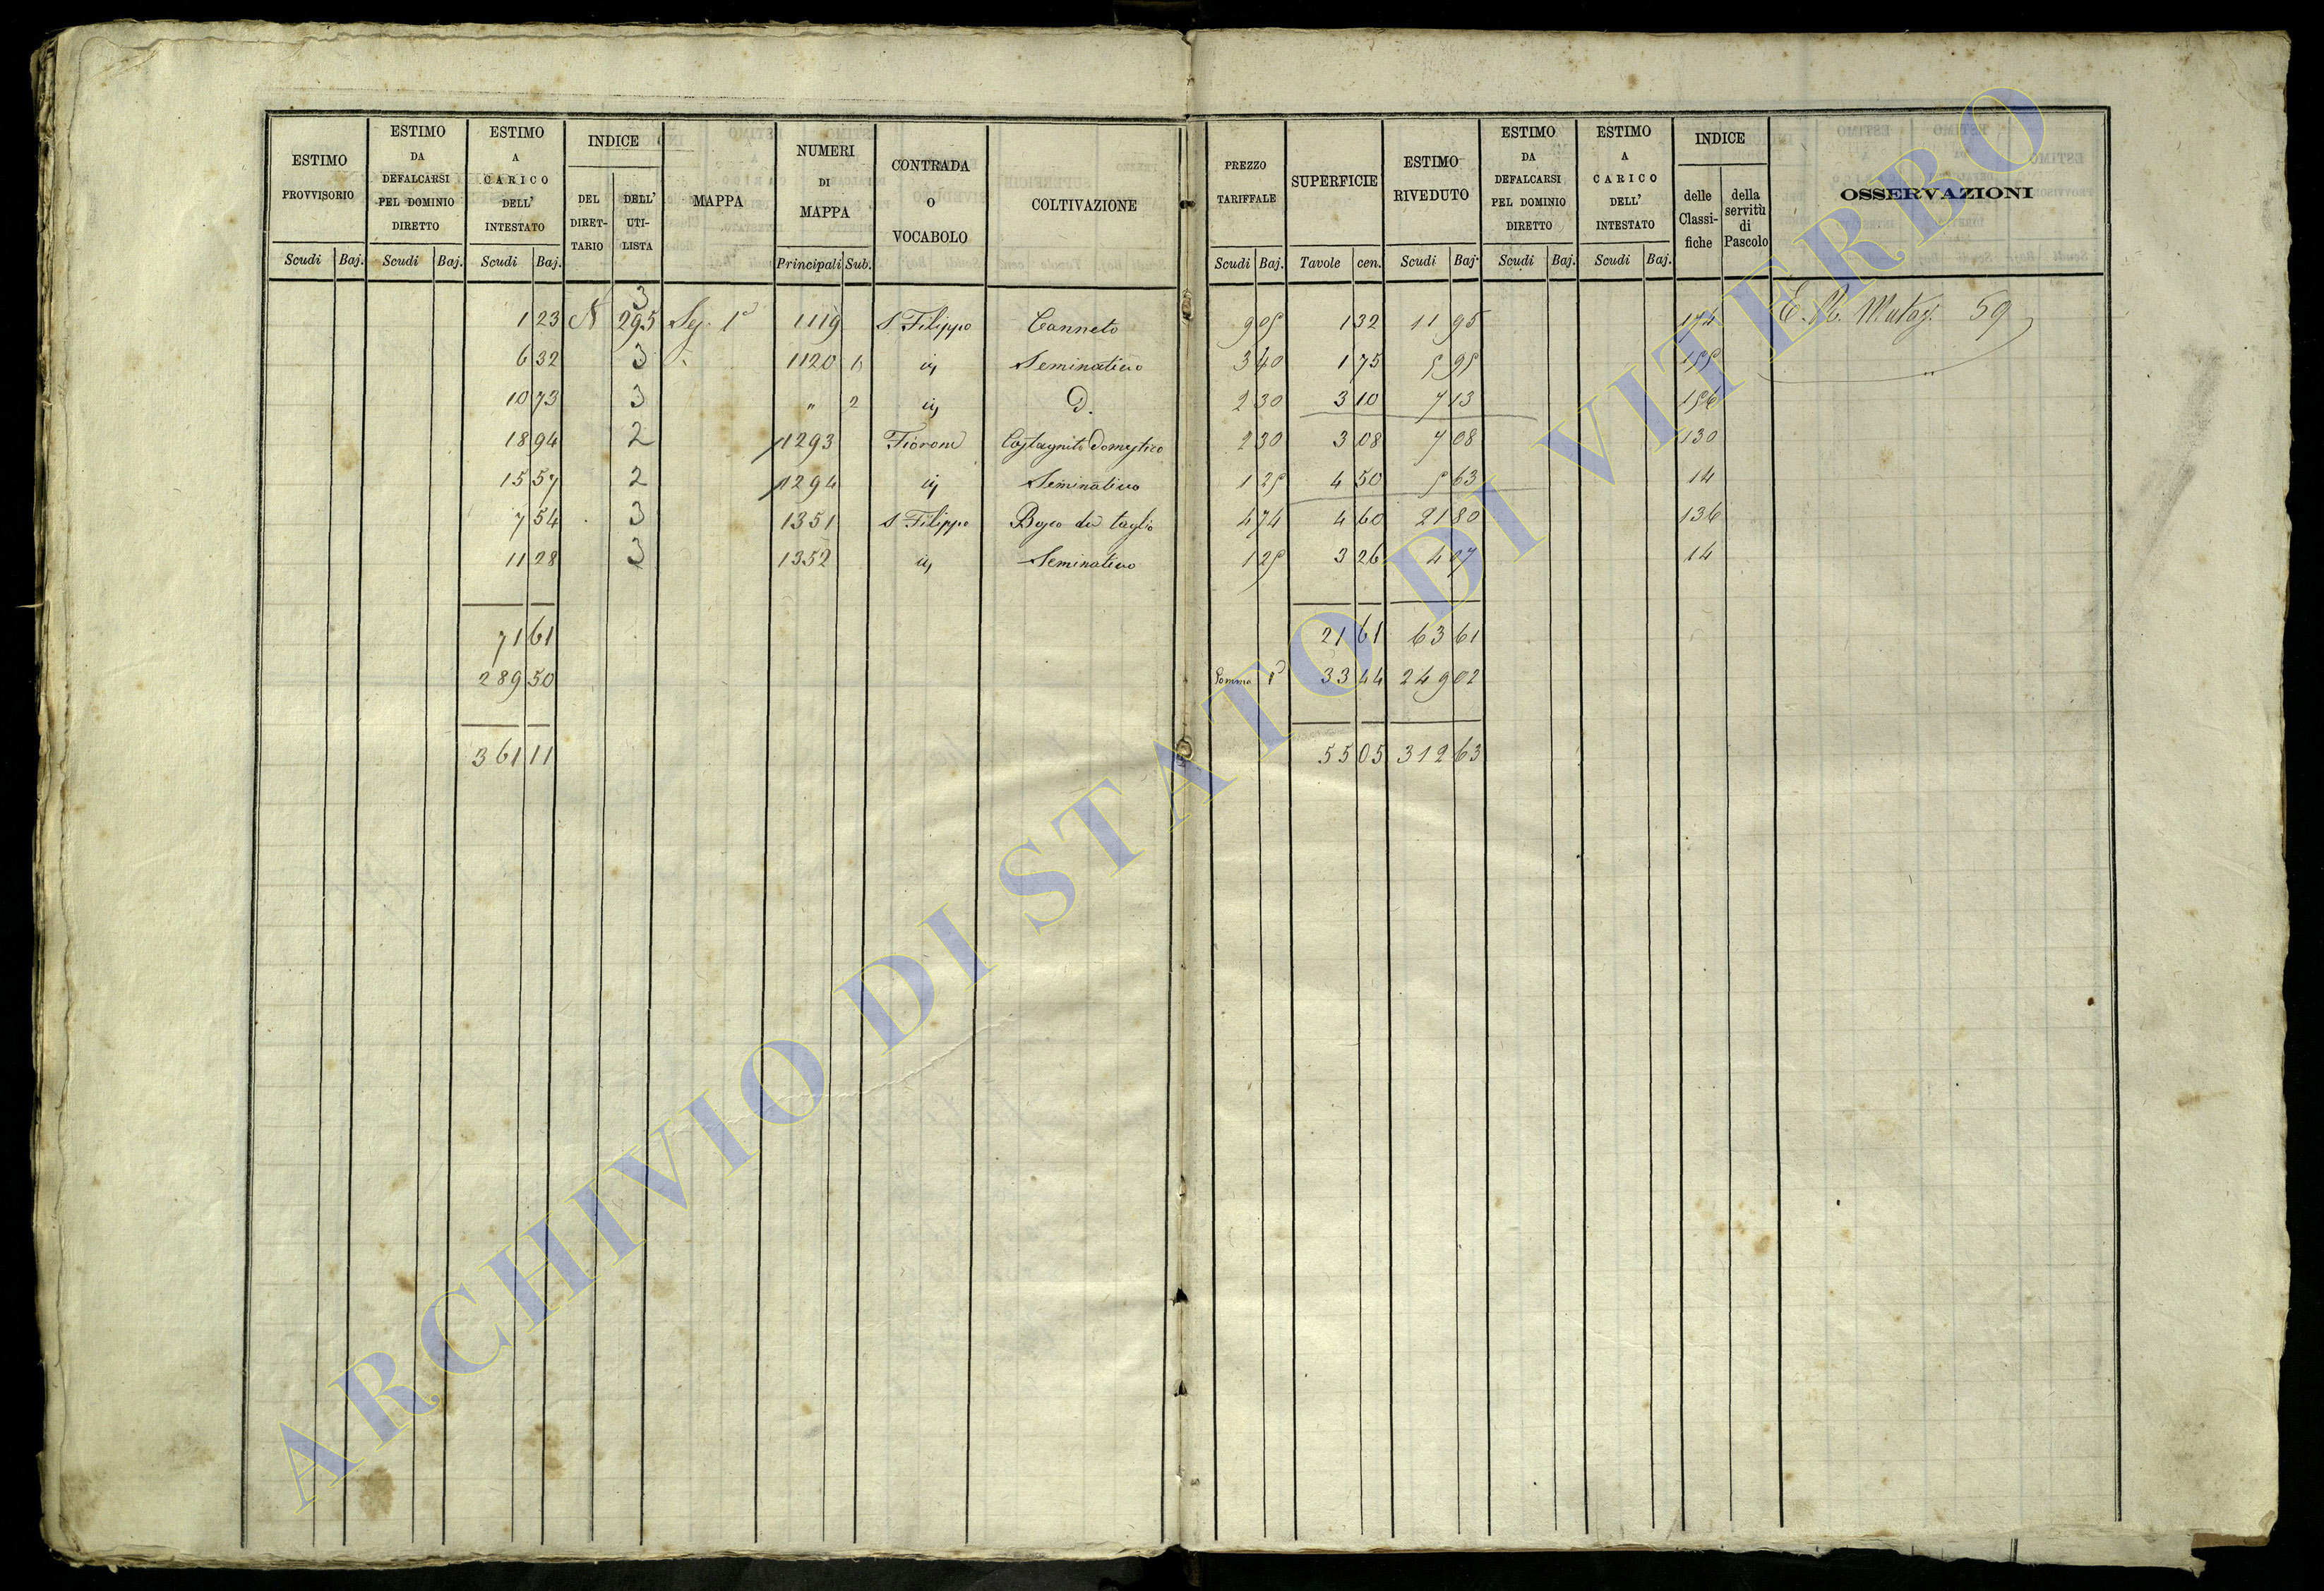 ESTIMO PROVVISORIO
ESTIMO DA DEFALCARSI PEL DOMINIO DIRETTO
ESTIMO A CARICO DELL' INTESTATO
INDICE
DEL DIRET-TARIO
DELL' UTI-LISTA
MAPPA
NUMERI DI MAPPA
CONTRADA O VOCABOLO
COLTIVAZIONE
PREZZO TARIFFALE
SUPERFICIE
ESTIMO RIVEDUTO
ESTIMO DA DEFALCARSI PEL DOMINIO DIRETTO
ESTIMO A CARICO DELL' INTESTATO
INDICE
delle Classi-fiche
della servitù di Pascolo
OSSERVAZIONI
Scudi Baj. Scudi Baj. Scudi Baj. Principali Sub. Scudi Baj. Tavole cen. Scudi Baj. Scudi Baj. Scudi Baj.
3
1 23 N 295 Sez. 1a 1119 S Filippo Canneto 9 05 1 32 11 95 174 59
6 32 3 1120 1 Seminativo 3 40 1 75 5 95 155
10 73 3 " 2 d. 2 30 3 10 7 13 156
18 94 2 1293 Castagnito domestico 2 30 3 08 7 08 130
15 57 2 1294 Seminativo 1 25 4 50 5 63 14
7 54 3 1351 S Filippo Bosco da taglio 4 74 4 60 21 80 136
11 28 3 1352 Seminativo 1 25 3 26 4 07 14
71 61 21 61 63 61
289 50 Somma 1a 33 44 249 02
361 11 55 05 312 63
ARCHIVIO DI STATO DI VITERBO